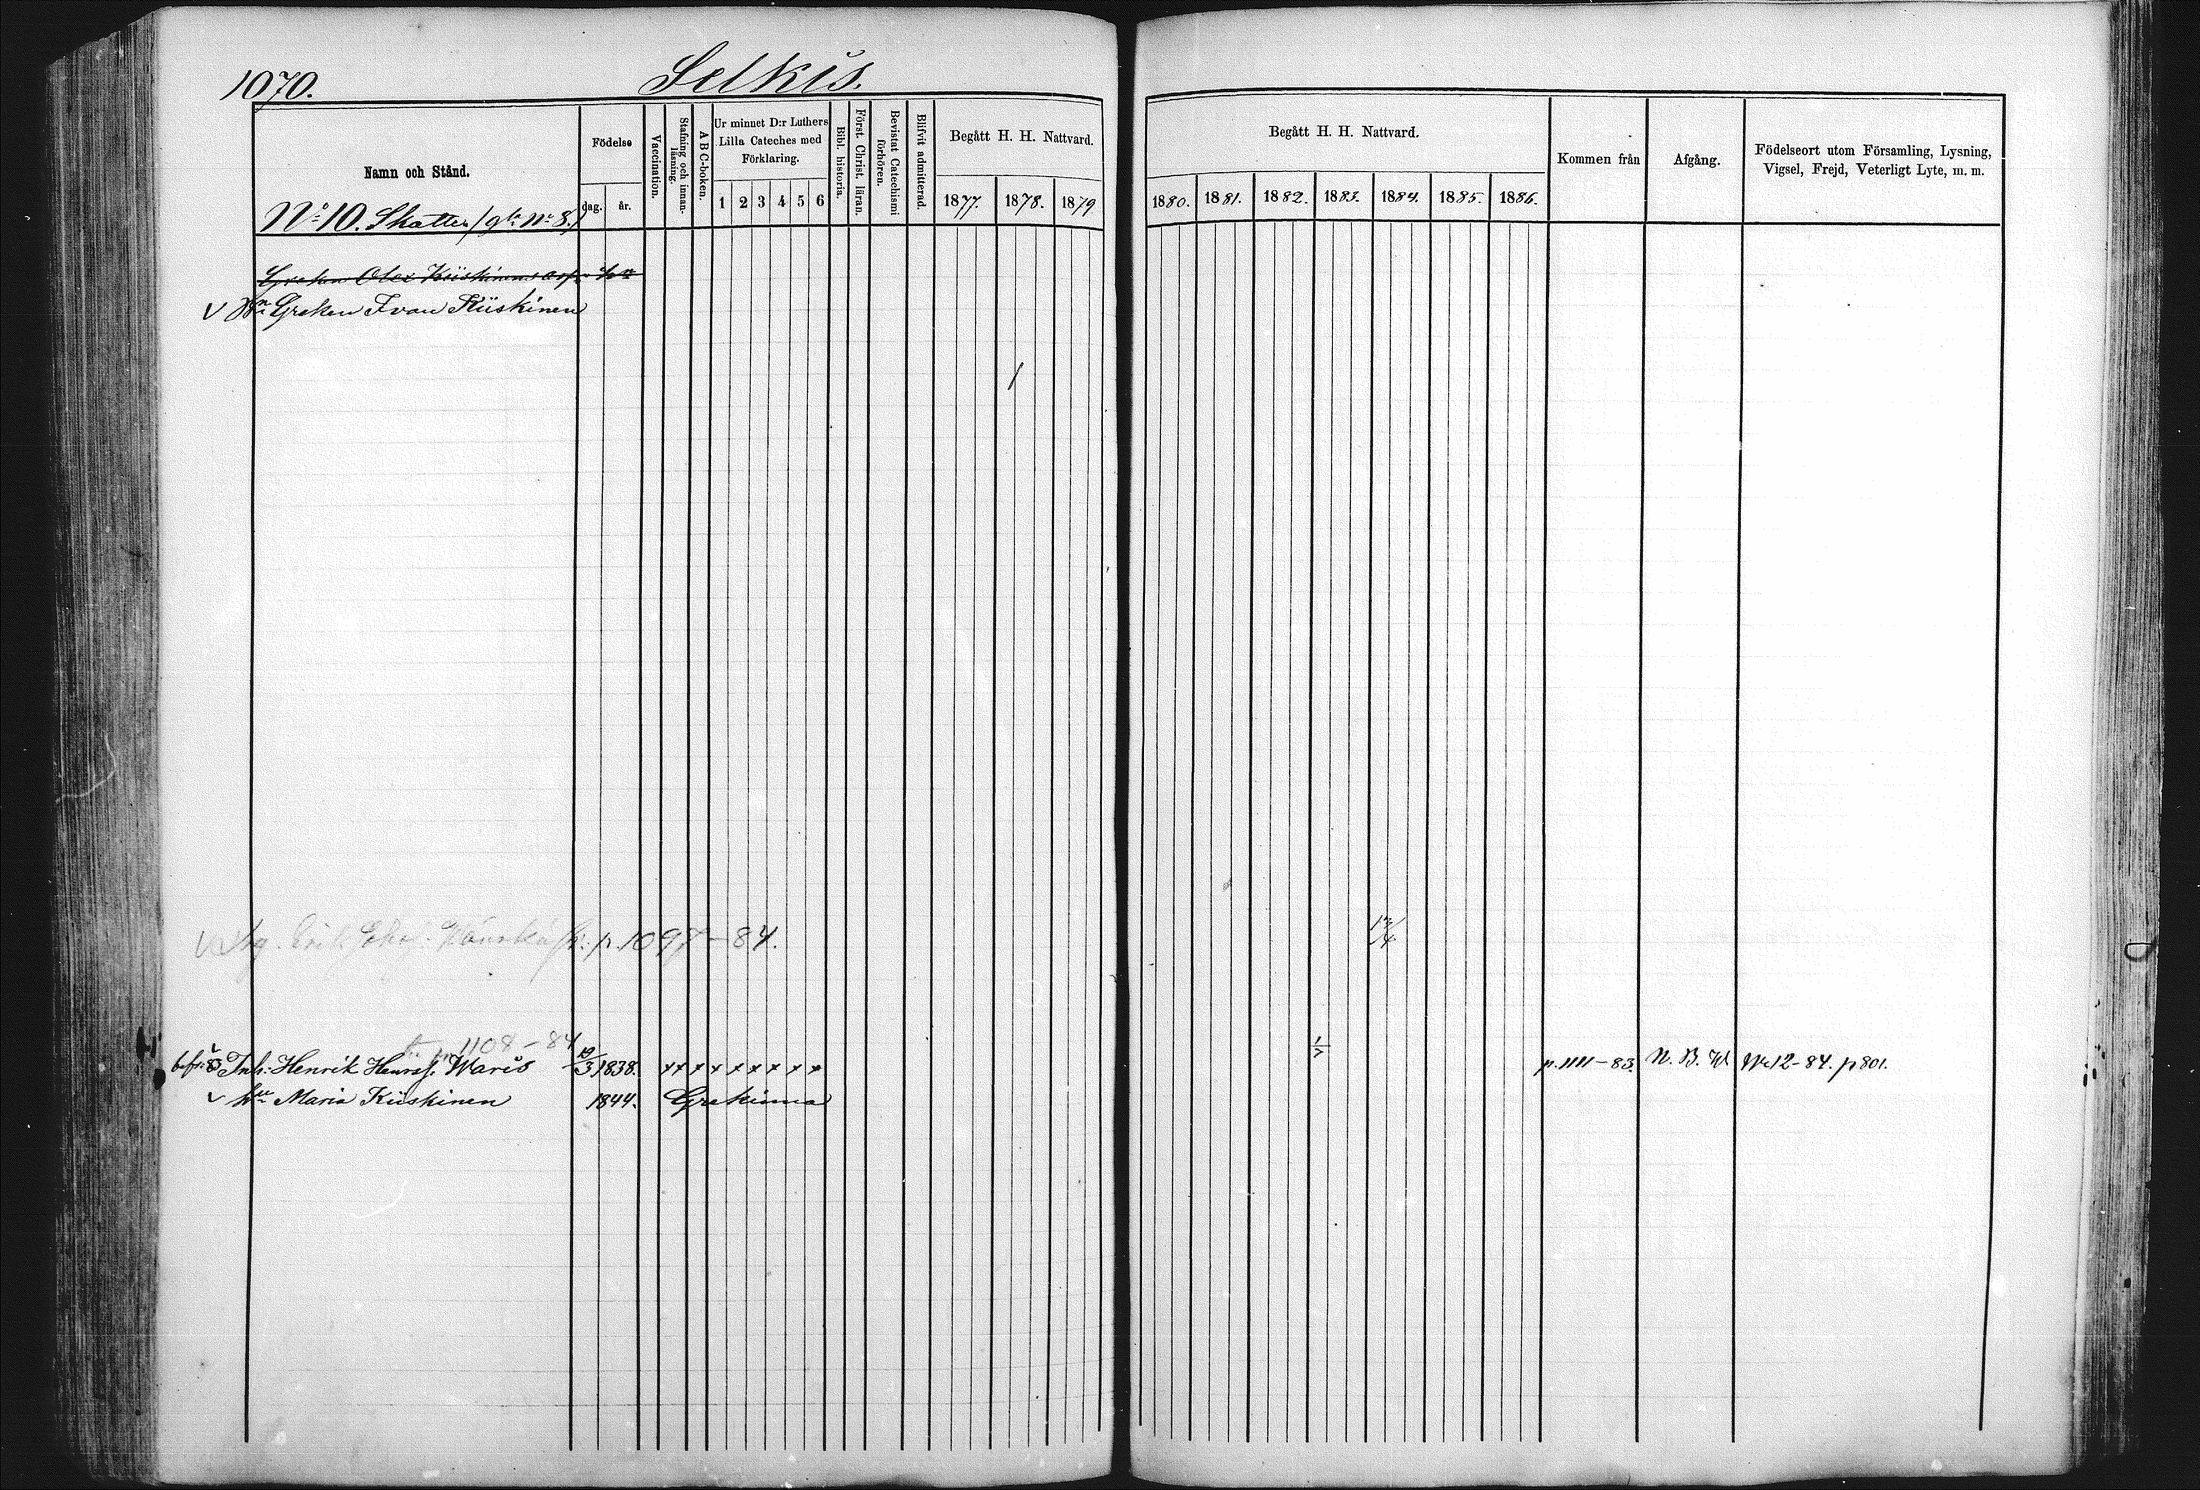 1070. Selkis.
Namn och Stånd.
Födelse
dag. år.
Vaccination.
Stafning och innan-läsning.
A B C-boken.
Ur minnet D:r Luthers Lilla Cateches med Förklaring.
1 2 3 4 5 6
Bibl. historia.
Först. Christ. läran.
Bevistat Catechismi förhören.
Blifvit admitterad.
Begått H. H. Nattvard.
1877. 1878. 1879
Begått H. H. Nattvard.
1880. 1881. 1882. 1883. 1884. 1885. 1886.
Kommen från
Afgång.
Födelseort utom Församling, Lysning,
Vigsel, Frejd, Veterligt Lyte, m. m.
No 10. Skatte
Greken Olex Kiiskinen
Greken Ivan Kiiskinen
Erik p. 1097-84.
1108-84
Inh: Henrik Henrs. Waris 19/3 1838. x x x x x x x x x 1/7 p. 1111-83. N. B. W 12-84. p 801.
hu Maria Kiiskinen 1844. Grekinna